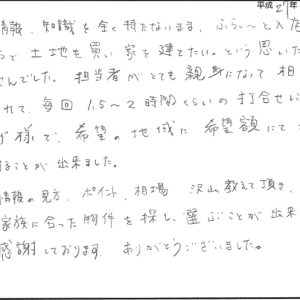 平成21年
情報、知識を全く持たないまま、ふらっ〜と入店
で土地を買い家を建てたい。という思いた
せんでした。担当者がとても親身になって相
れて、毎回1.5〜2時間くらいの打合せに
げ様で、希望の地域に希望額にて
ることが出来ました。
情報の見方、ポイント、相場、沢山教えて頂き、
家族に合った物件を探し、選ぶことが出来
感謝しております。ありがとうございました。